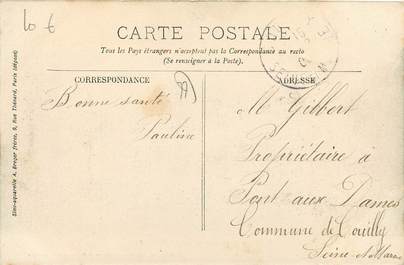 10 €
CARTE POSTALE
Tous les Pays étrangers n'acceptent pas la Correspondance au recto
(Se renseigner à la Poste).
CORRESPONDANCE
ADRESSE
Bonne santé
Pauline
M. Gilbert
Propriétaire à
Pont aux Dames
Commune de Couilly
Seine et Marne
Simi-aquarelle A. Breger frères, 9, Rue Thénard, Paris (déposé)